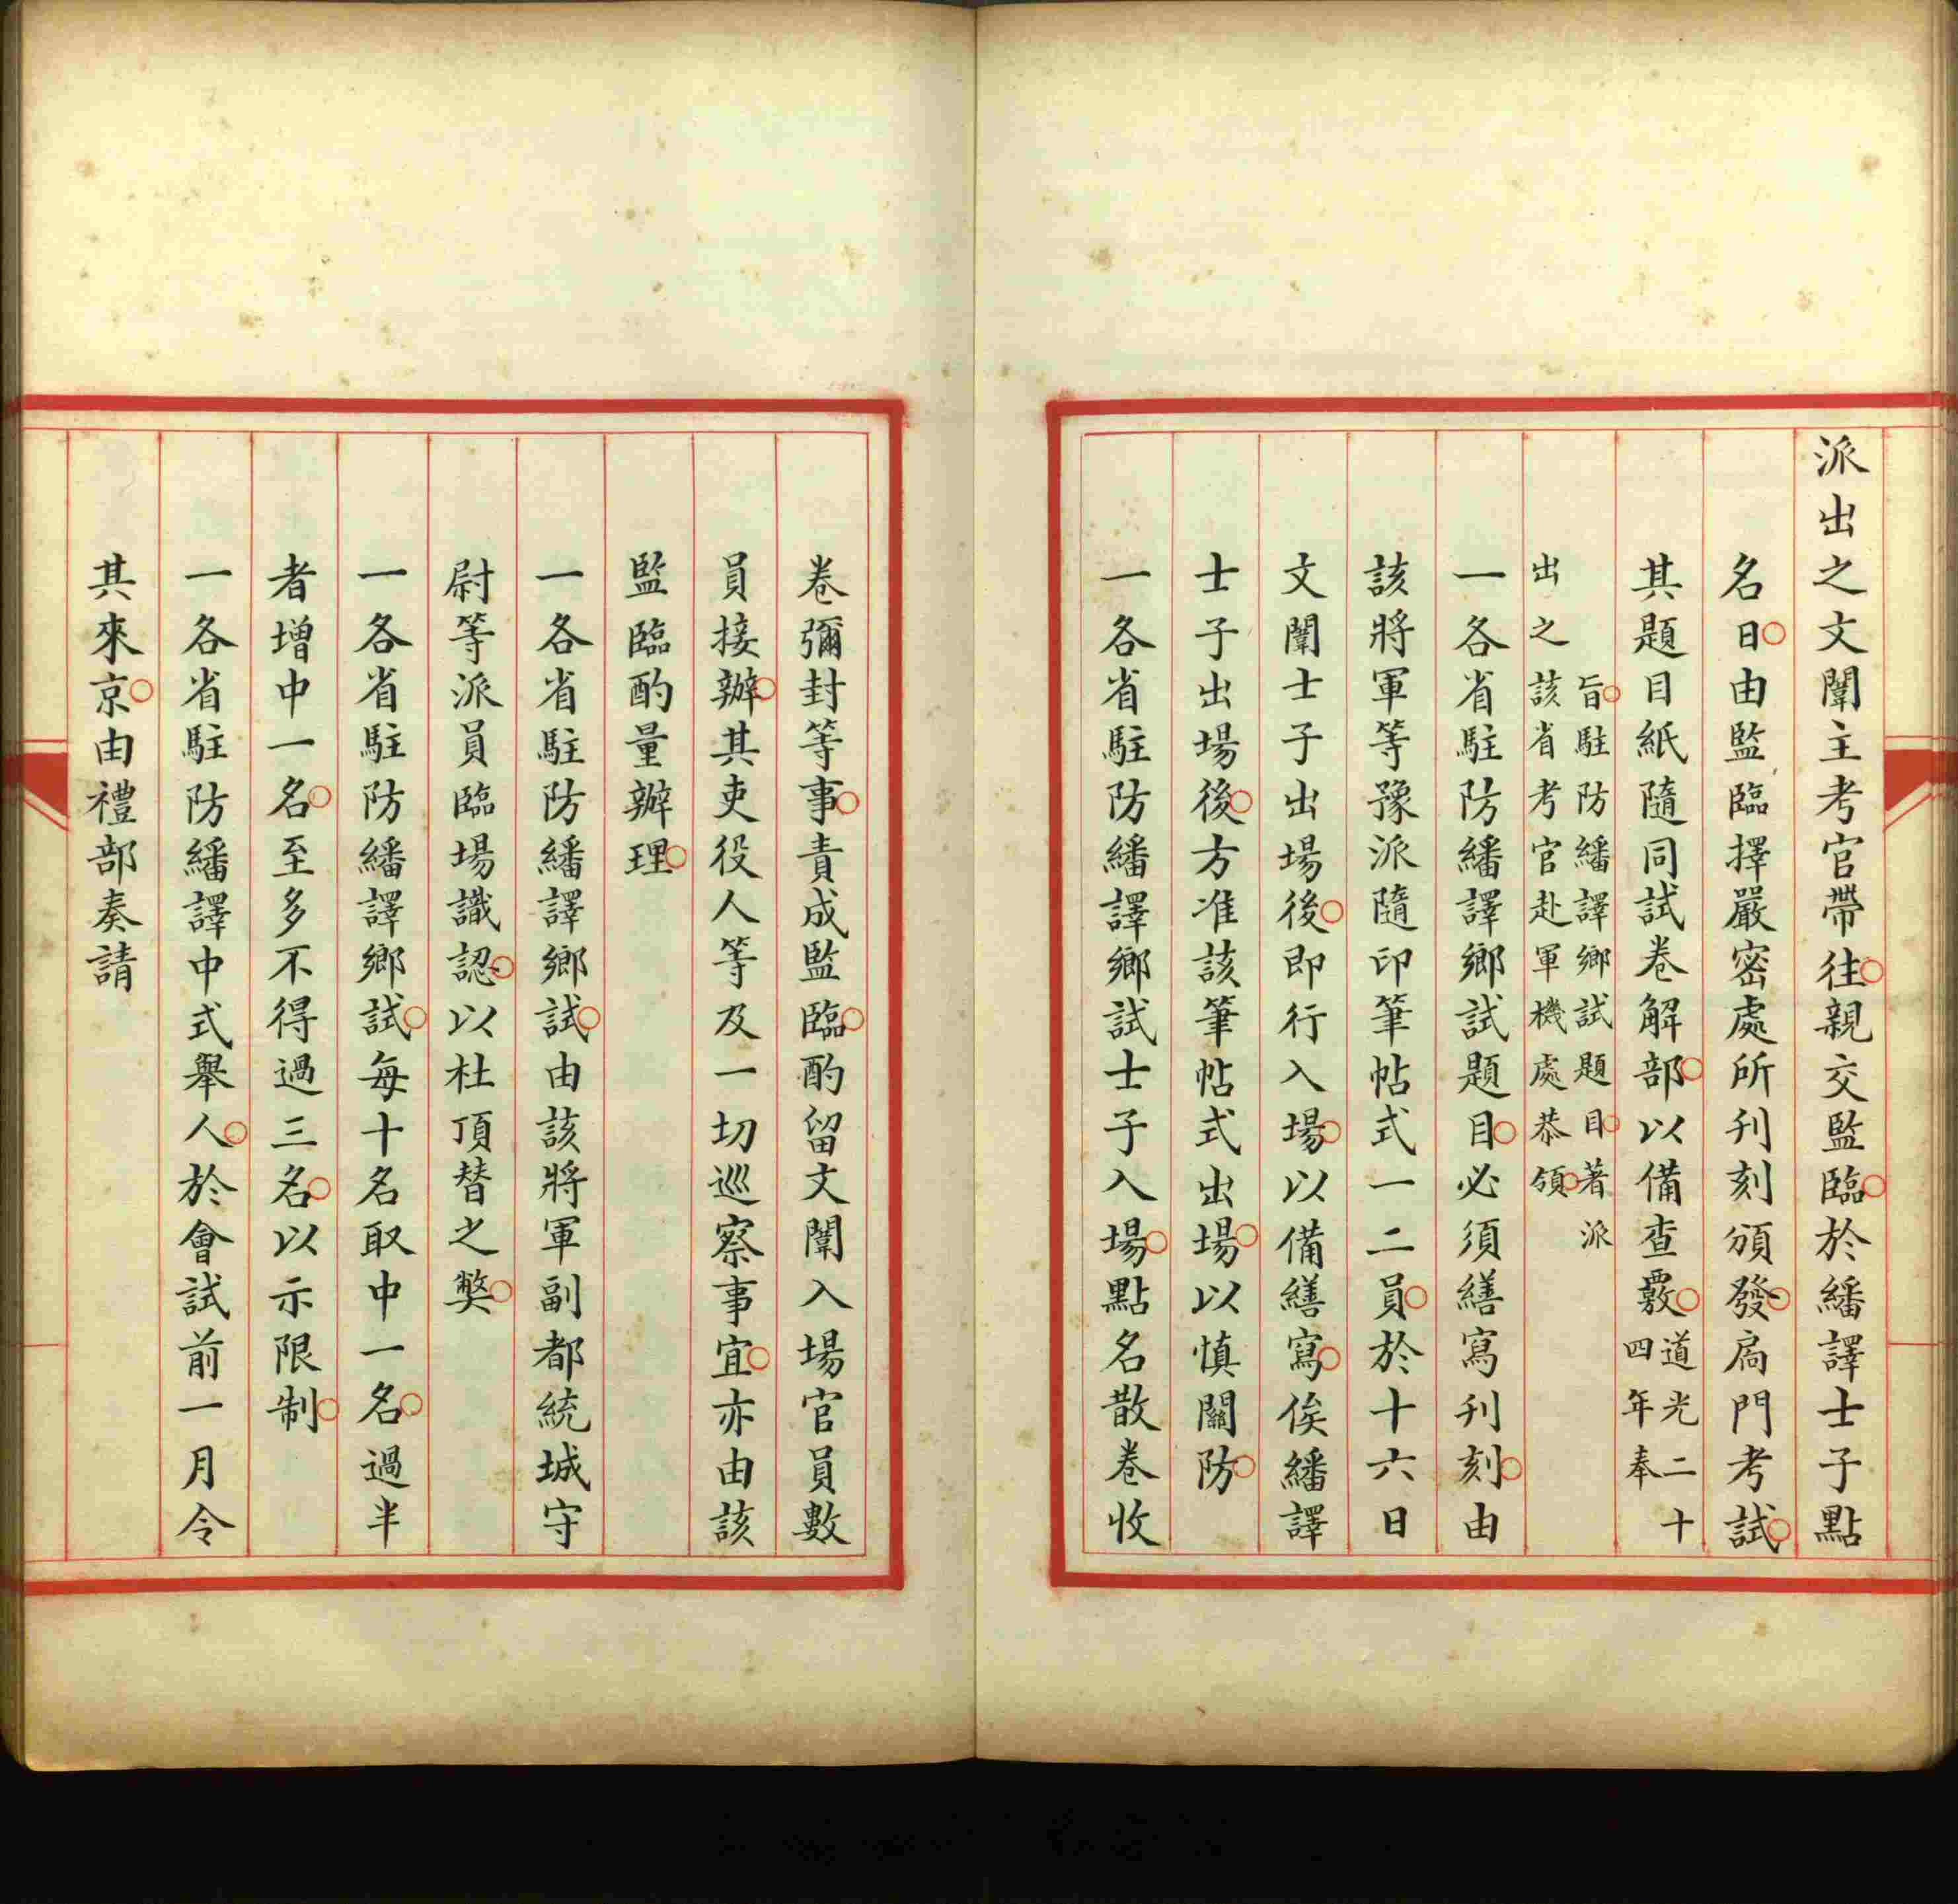 派出之文闈主考官帶往親交監臨於繙譯士子點
名日由監臨擇嚴密處所刊刻頒發扃門考試
其題目紙隨同試卷解部以備查覈道光二十
四年奉
旨駐防繙譯鄉試題目著派
出之該省考官赴軍機處恭領
一各省駐防繙譯鄉試題目必須繕寫刊刻由
該將軍等豫派隨印筆帖式一二員於十六日
文闈士子出場後即行入場以備繕寫俟繙譯
士子出場後方准該筆帖式出場以慎關防
一各省駐防繙譯鄉試士子入場點名散卷收
卷彌封等事責成監臨酌留文闈入場官員數
員接辦其吏役人等及一切巡察事宜亦由該
監臨酌量辦理
一各省駐防繙譯鄉試由該將軍副都統城守
尉等派員臨場識認以杜頂替之獘
一各省駐防繙譯鄉試每十名取中一名過半
者增中一名至多不得過三名以示限制
一各省駐防繙譯中式舉人於會試前一月令
其來京由禮部奏請